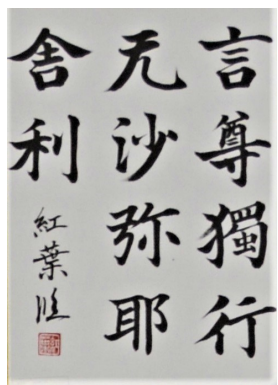 言尊獨行
无沙弥耶
舍利
紅葉臨